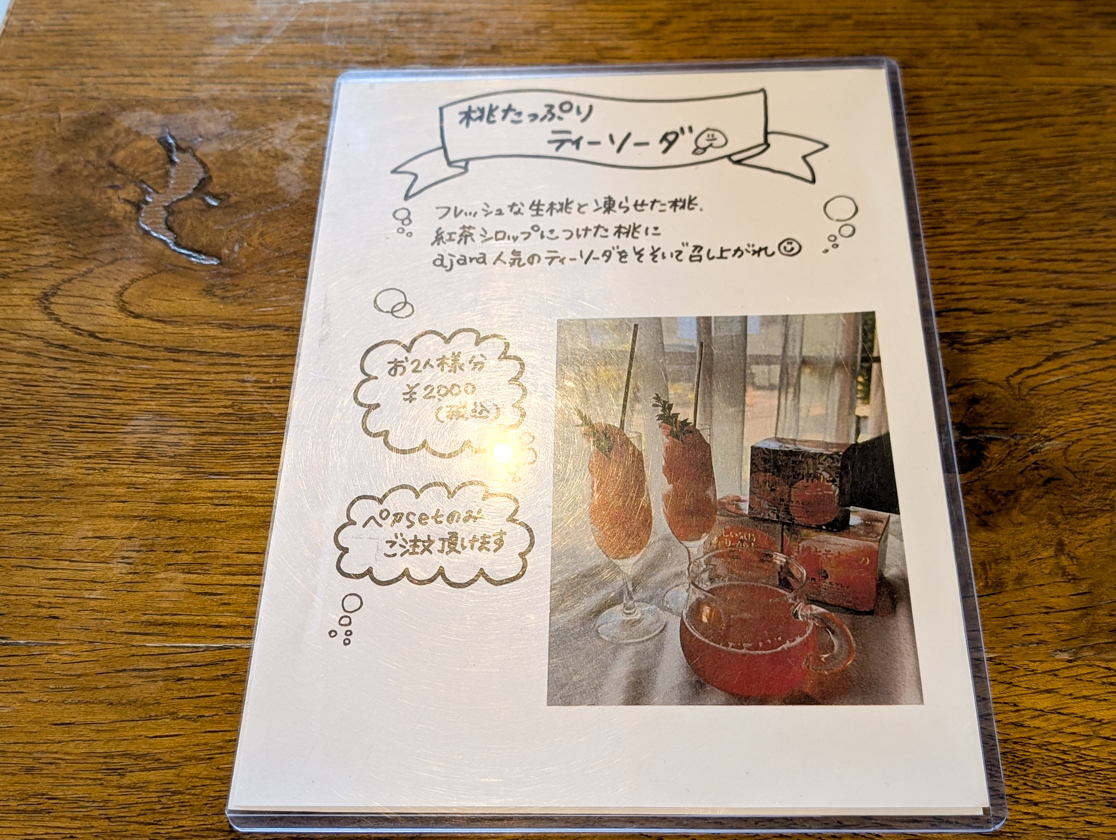 桃たっぷり
ティーソーダ
フレッシュな生桃と凍らせた桃、
紅茶シロップにつけた桃に
ajara人気のティーソーダをそそいで召し上がれ
お2人様分
¥2000
(税込)
ペアsetのみ
ご注文頂けます